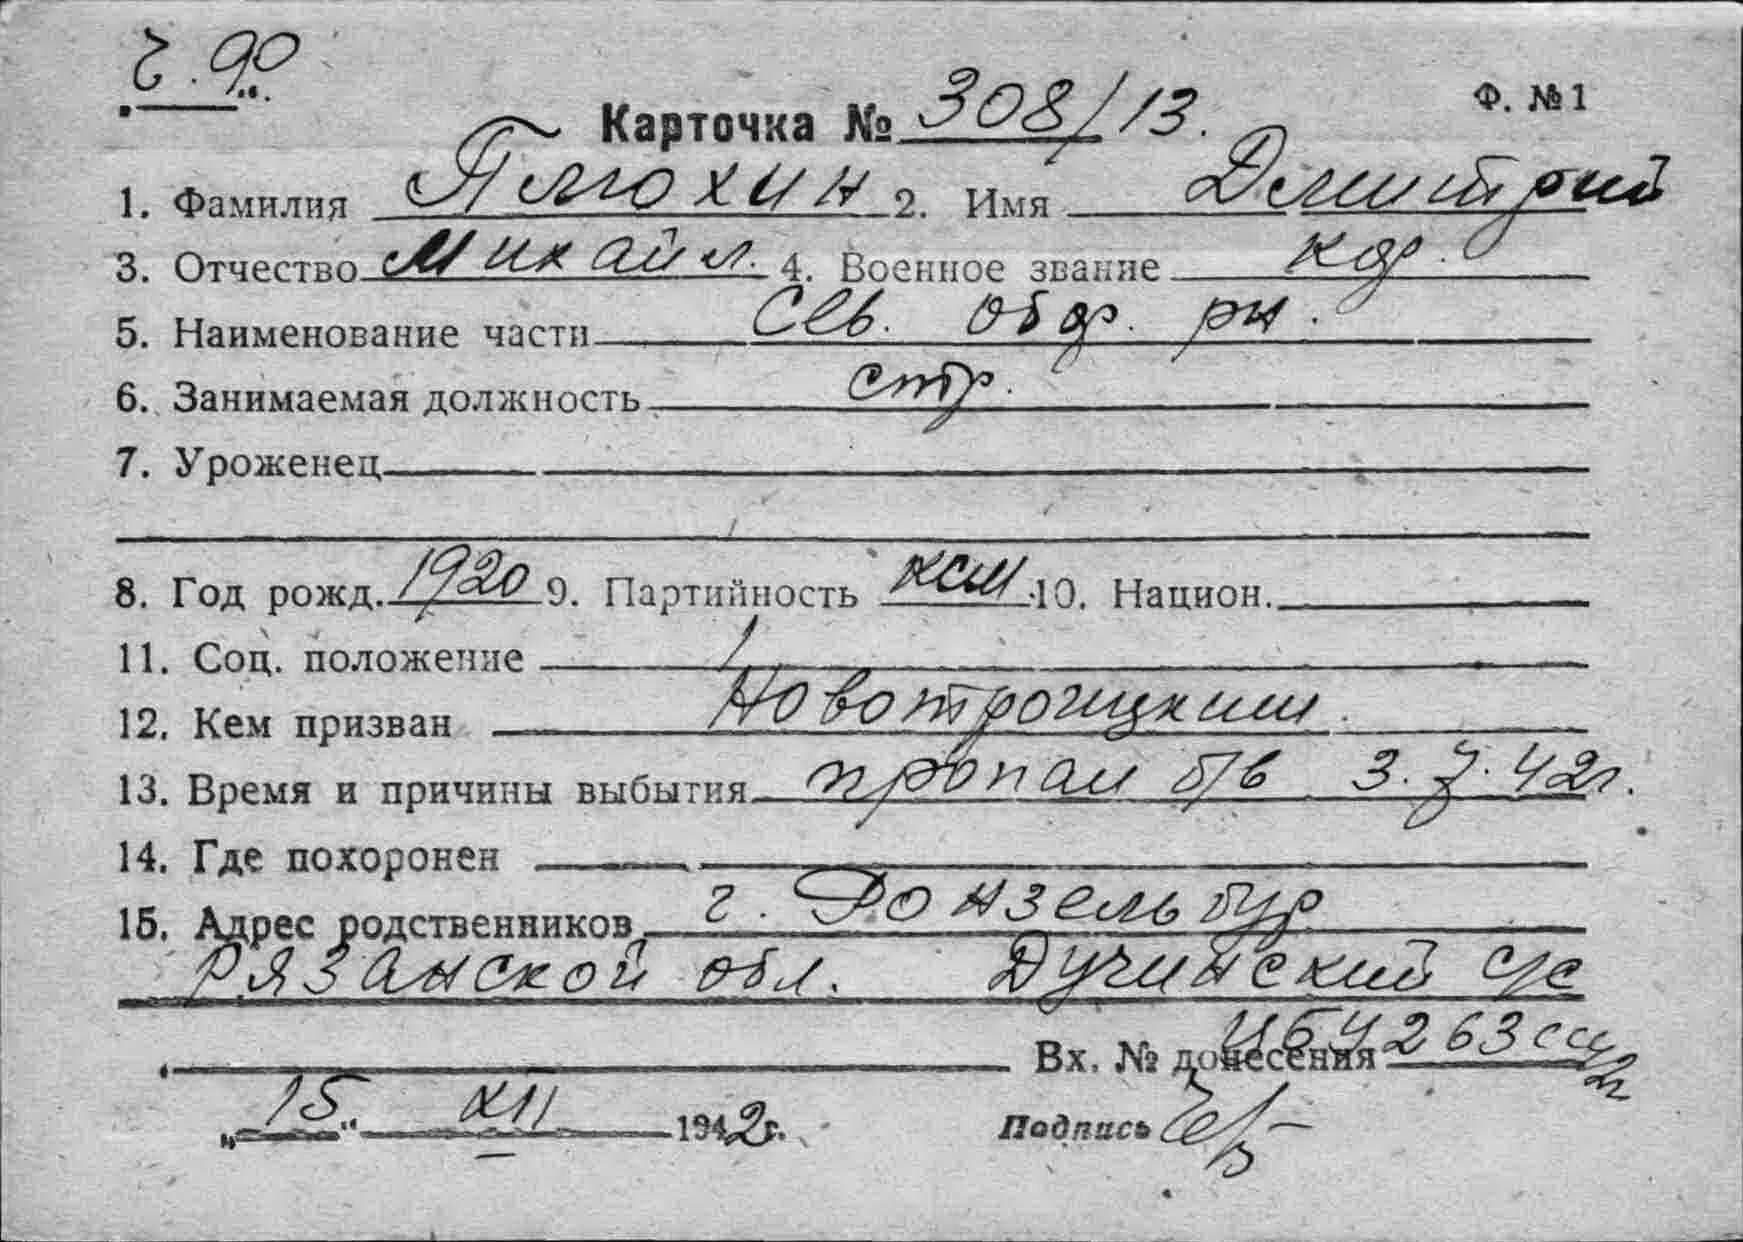 г. 90
Ф. №1
Карточка № 308/13.
1. Фамилия Плюхин 2. Имя Дмитрий
3. Отчество Михайл. 4. Военное звание кр.
5. Наименование части Сев. обор. рн.
6. Занимаемая должность стр.
7. Уроженец
8. Год рожд. 1920 9. Партийность ксм 10. Национ.
11. Соц. положение
12. Кем призван Новотроицким
13. Время и причины выбытия пропал б/в 3.7.42г.
14. Где похоронен
15. Адрес родственников г. Донзельбур
Рязанской обл. Дучинский с/с
Вх. № донесения
„15“ XII 1942г. Подпись